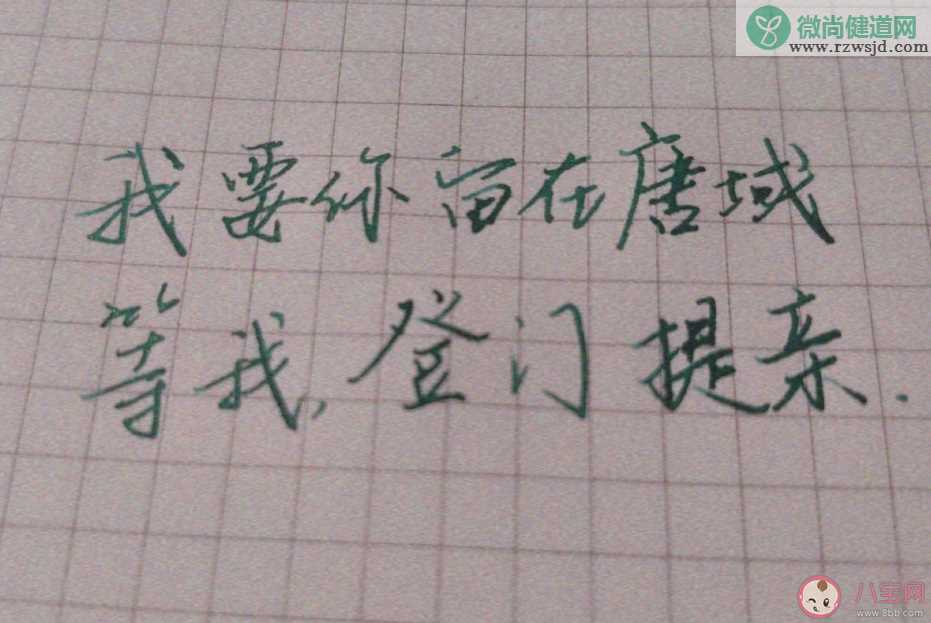 微尚健道网
www.rzwsjd.com
我要你留在唐域
等我,登门提亲.
八宝网
www.8bb.com